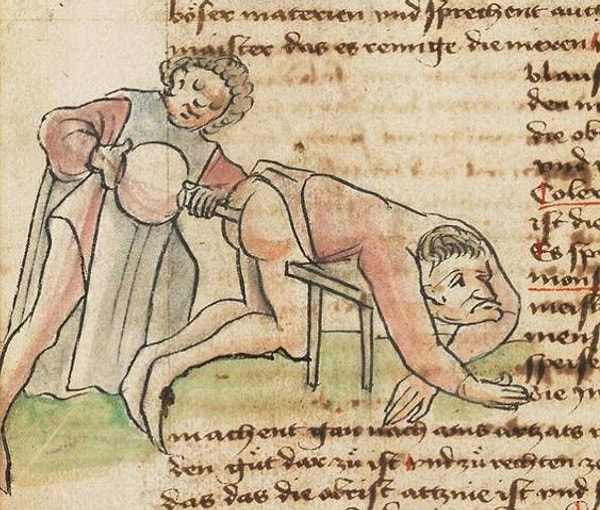 böser materien vnd sprechent auch
maister das es reinige die nieren
blaus
den n
die ob
vnd v
Coler
ist die
Es spr
mons
meist
mens
speise
die jn
machent gan nach ains artzats r
den güt dar zü ist vnd zü rechten ze
das das die obrist artznie ist vnd s